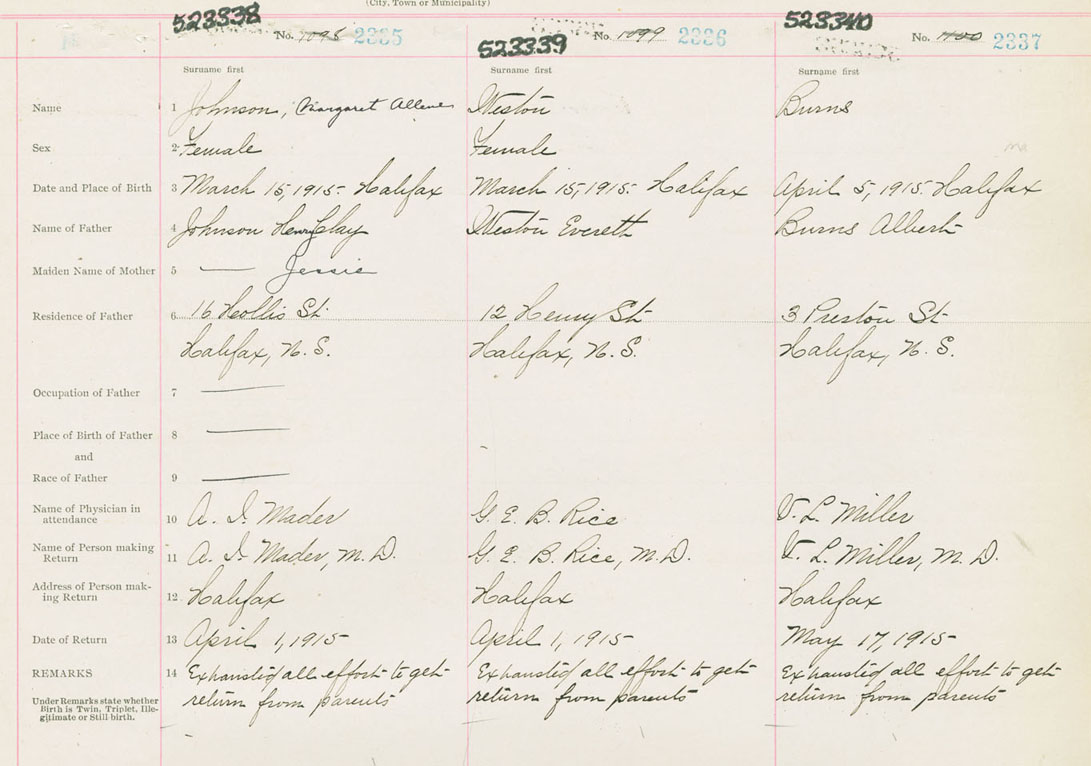 (City, Town or Municipality)
523338 No. 1098 2335
523339 No. 1099 2336
523340 No. 1100 2337
Surname first Surname first Surname first
Name 1 Johnson, Margaret Allene Weston Burns
Sex 2 Female Female
Date and Place of Birth 3 March 15, 1915 - Halifax March 15, 1915 - Halifax April 5, 1915 Halifax
Name of Father 4 Johnson Henry Clay Weston Everett Burns Albert
Maiden Name of Mother 5 — Jessie
Residence of Father 6 16 Hollis St. 12 Henry St 3 Preston St
Halifax, N. S. Halifax, N. S. Halifax, N. S.
Occupation of Father 7 —
Place of Birth of Father 8 —
and
Race of Father 9 —
Name of Physician in
attendance 10 A. I. Mader G. E. B. Rice V. L. Miller
Name of Person making
Return 11 A. I. Mader, M. D. G. E. B. Rice, M. D. V. L. Miller, M. D.
Address of Person mak-
ing Return 12 Halifax Halifax Halifax
Date of Return 13 April 1, 1915 April 1, 1915 May 17, 1915
REMARKS 14 Exhausted all effort to get Exhausted all effort to get Exhausted all effort to get
return from parents return from parents return from parents
Under Remarks state whether
Birth is Twin, Triplet, Ille-
gitimate or Still-birth.